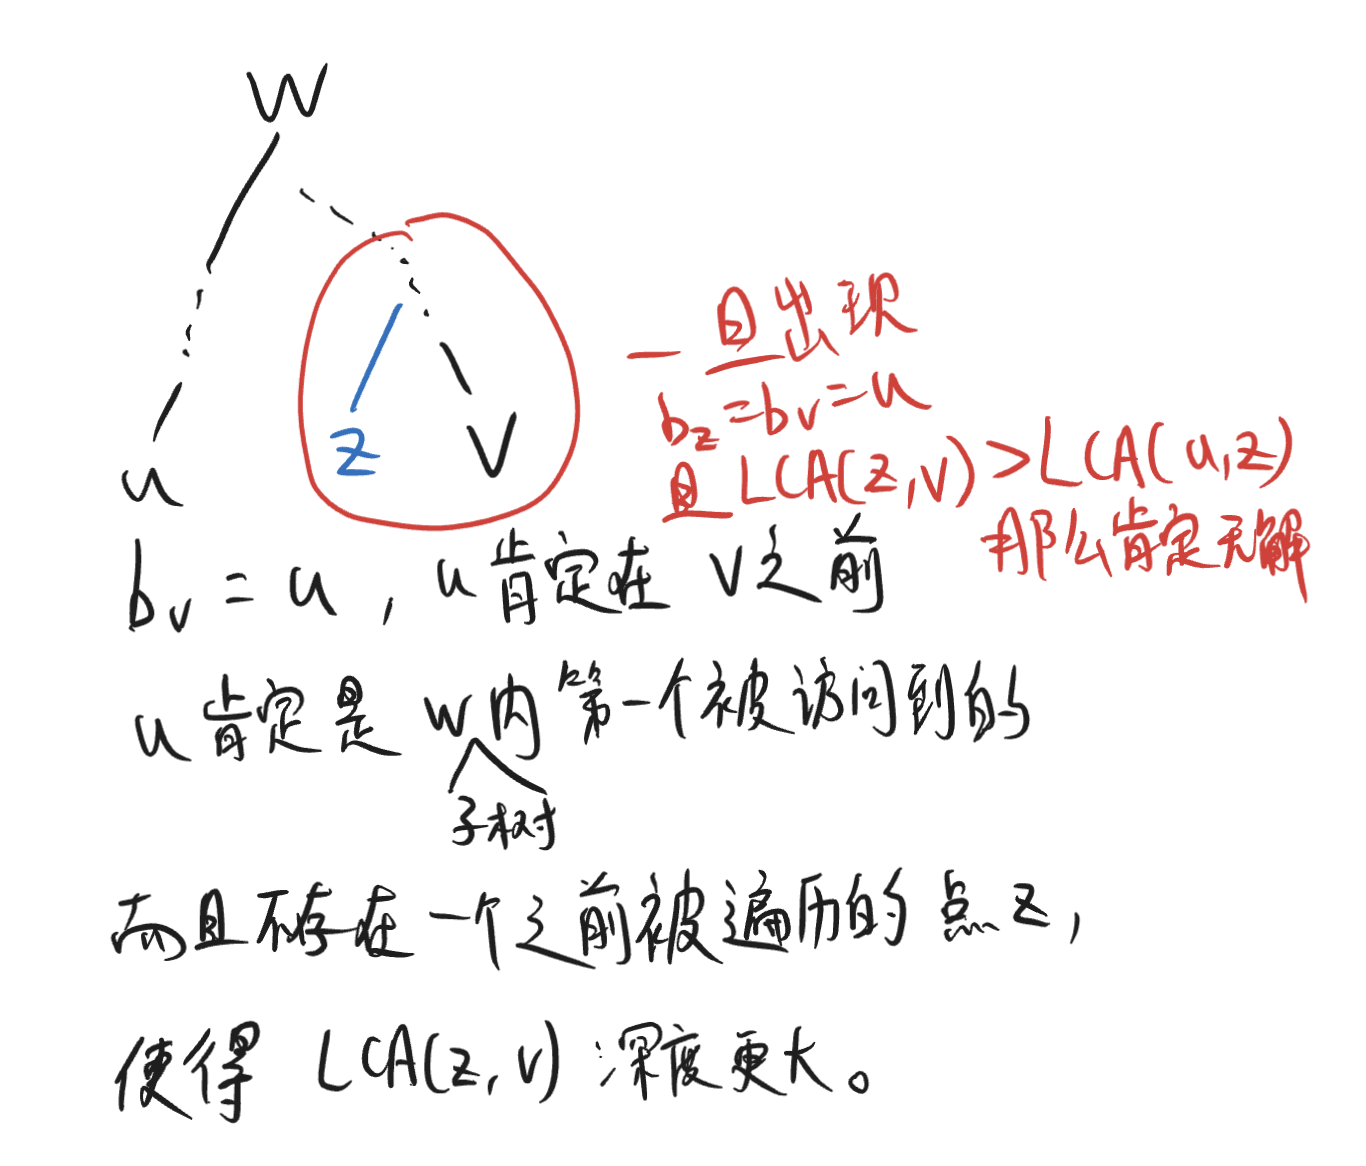 W
z
V
u
一旦出现
b_z=b_v=u
且 LCA(z,v)>LCA(u,z)
那么肯定无解
b_v = u , u肯定在 v之前
u肯定是 w内第一个被访问到的
子树
而且不存在一个之前被遍历的点z,
使得 LCA(z,v) 深度更大。